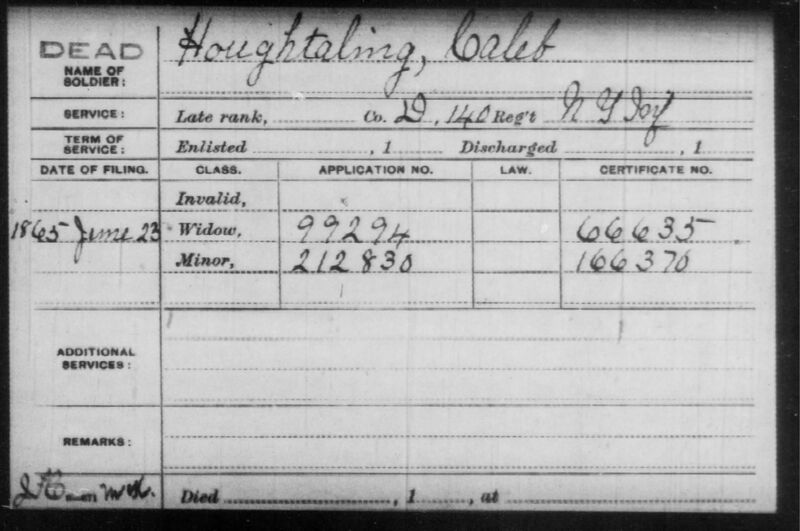 DEAD Houghtaling, Caleb
NAME OF SOLDIER:
SERVICE: Late rank, Co. D, 140 Reg't N Y Inf
TERM OF SERVICE: Enlisted , 1 Discharged , 1
DATE OF FILING. CLASS. APPLICATION NO. LAW. CERTIFICATE NO.
Invalid,
1865 June 23 Widow, 99294 66635
Minor, 212830 166370
ADDITIONAL SERVICES:
REMARKS:
Died , 1 , at